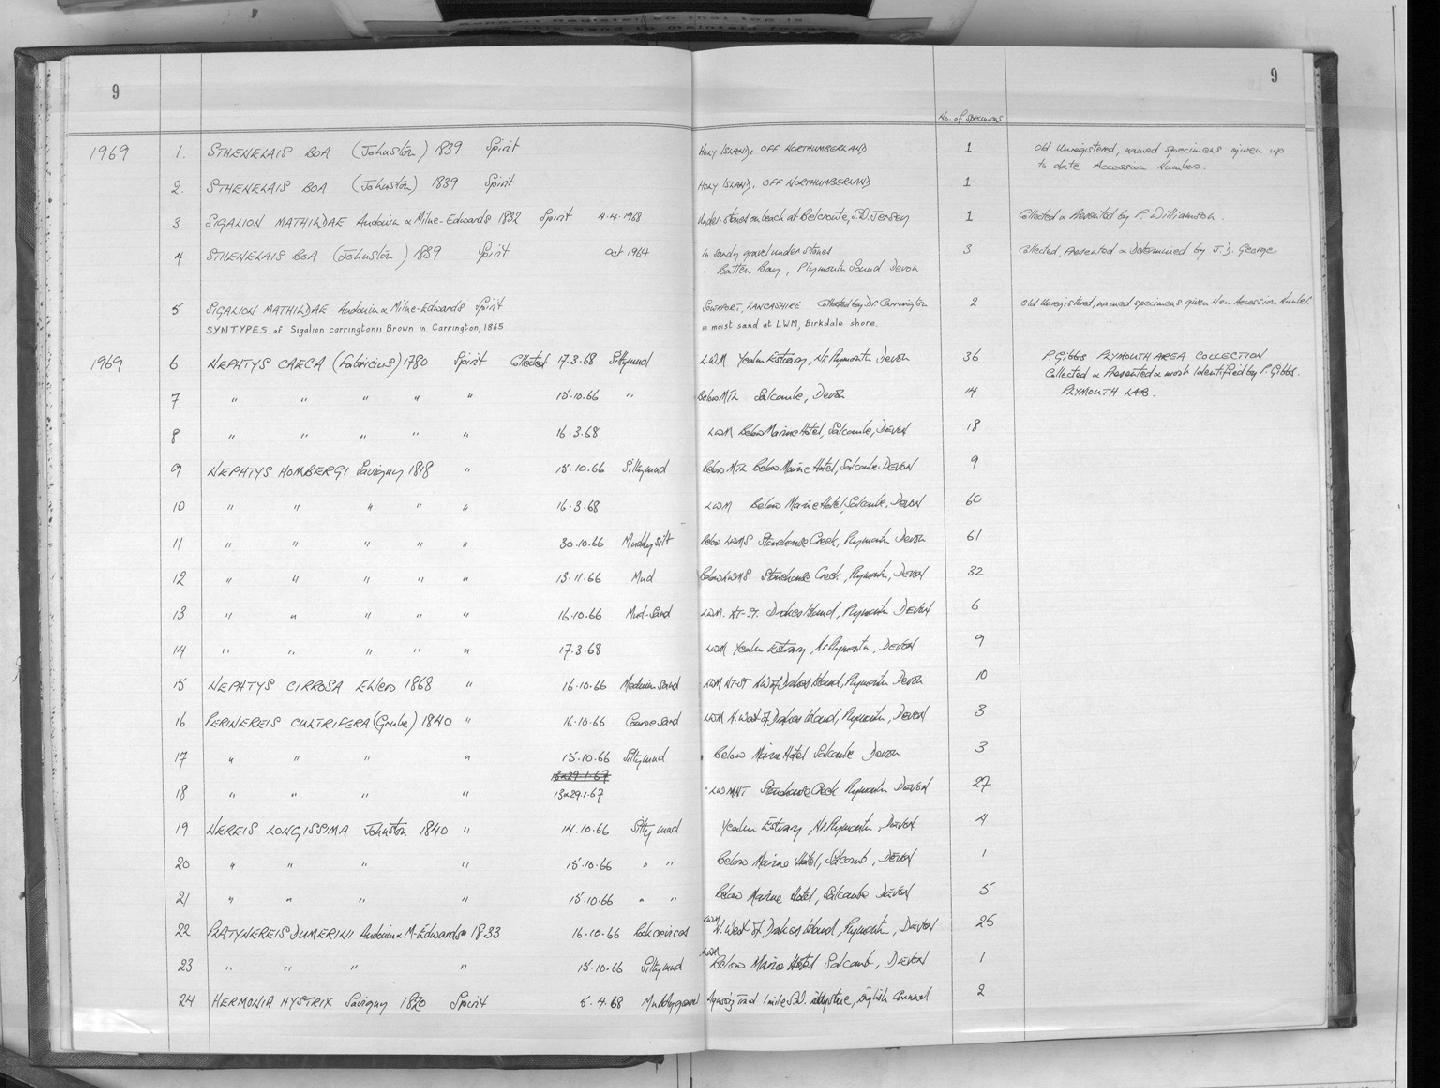 9 9
No. of specimens
1969 1. STHENELAIS BOA (Johnston) 1839 Spirit HOLY ISLAND, OFF NORTHUMBERLAND 1 Old Unregistered, named specimens given up
to date Accession Number.
2. STHENELAIS BOA (Johnston) 1839 Spirit HOLY ISLAND, OFF NORTHUMBERLAND 1
3 SIGALION MATHILDAE Audouin & Milne-Edwards 1832 Spirit 4.4.1968 Under stones on beach at JERSEY 1 Collected & Presented by F. Williamson.
4 STHENELAIS BOA (Johnston) 1839 Spirit Oct 1964 in sandy gravel under stones 3 Collected, Presented & Determined by J. D. George
Batten Bay, Plymouth Sound Devon
5 SIGALION MATHILDAE Audouin & Milne-Edwards Spirit SOUTHPORT, LANCASHIRE Collected by Dr. Carrington 2 Old Unregistered, named specimens given New Accession Number
SYNTYPES of Sigalion carringtonii Brown in Carrington, 1865 in moist sand at LWM, Birkdale shore.
1969 6 NEPHTYS CAECA (Fabricius) 1780 Spirit Collected 17.3.68 Silty mud LWM Yealm Estuary, Nr. Plymouth Devon 36 P. Gibbs PLYMOUTH AREA COLLECTION
Collected & Presented & most Identified by P. Gibbs.
7 " " " " " 15.10.66 " Below MTL Salcombe, Devon 14 PLYMOUTH LAB.
8 " " " " " 16.3.68 LWM Below Marine Hotel, Salcombe, DEVON 18
9 NEPHTYS HOMBERGI Savigny 1818 " 15.10.66 Silty mud Below MTL Below Marine Hotel, Salcombe. DEVON 9
10 " " " " " 16.3.68 LWM Below Marine Hotel, Salcombe, DEVON 60
11 " " " " " 30.10.66 Muddy silt Below LWMS Stonehouse Creek, Plymouth Devon 61
12 " " " " " 15.11.66 Mud Below LWMS Stonehouse Creek, Plymouth, DEVON 32
13 " " " " " 16.10.66 Mud-Sand LWM. Drakes Island, Plymouth DEVON 6
14 " " " " " 17.3.68 LWM Yealm Estuary, Nr. Plymouth, DEVON 9
15 NEPHTYS CIRROSA Ehlers 1868 " 16.10.66 Medium sand LWM NW of Drakes Island, Plymouth Devon 10
16 PERINEREIS CULTRIFERA (Grube) 1840 " 16.10.66 Coarse sand LWM N. West of Drakes Island, Plymouth, DEVON 3
17 " " " " 15.10.66 Silty mud Below Marine Hotel Salcombe Devon 3
13&29.1.67
18 " " " " 13&29.1.67 LWMNT Stonehouse Creek Plymouth DEVON 27
19 NEREIS LONGISSIMA Johnston 1840 " 14.10.66 Silty mud Yealm Estuary, Nr. Plymouth, DEVON 4
20 " " " " 15.10.66 " " Below Marine Hotel, Salcomb, DEVON 1
21 " " " " 15.10.66 " " Below Marine Hotel, Salcombe DEVON 5
22 PLATYNEREIS DUMERILII Audouin & M-Edwards 1833 16.10.66 Rock crevices LWM N. West of Drakes Island, Plymouth, DEVON 25
23 " " " " 15.10.66 Silty mud LWM Below Marine Hotel Salcomb, DEVON 1
24 HERMONIA HYSTRIX Savigny 1820 Spirit 5.4.68 Muddy gravel English Channel 2